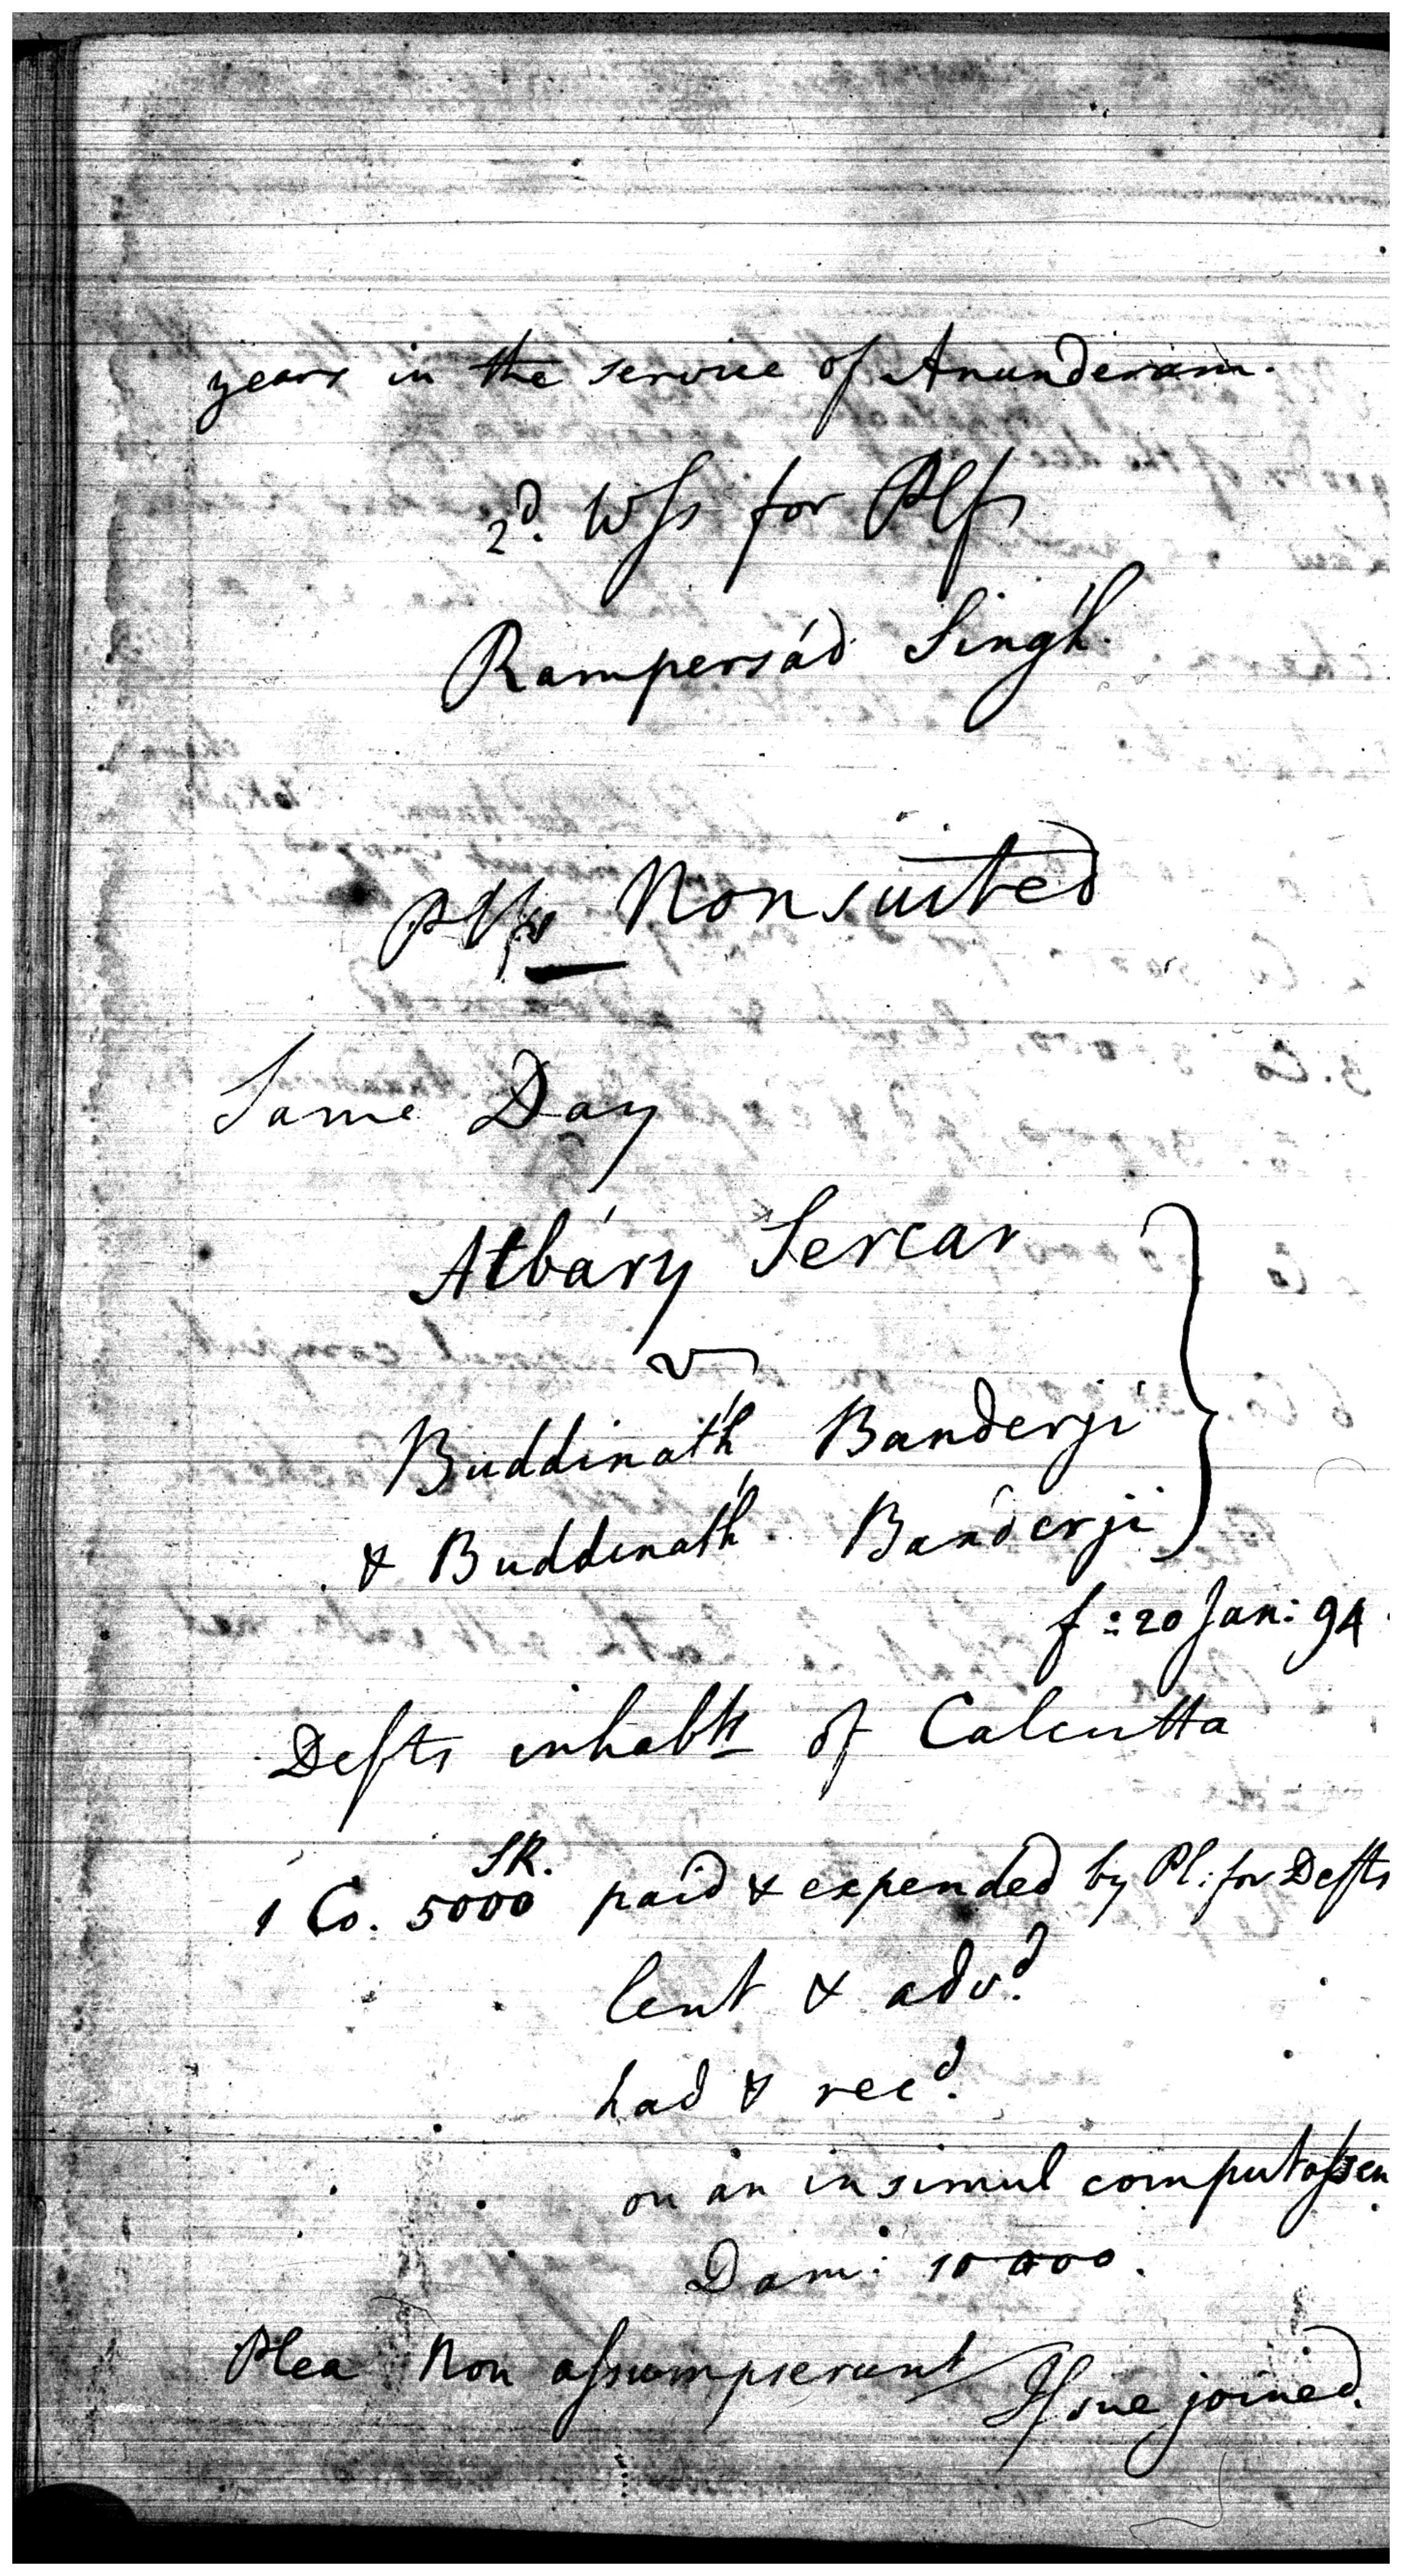 years in the service of Anunderám.
2d. Wss for Plfs
Rampersád Singh.
Plfs Nonsuited
Same Day
Atbáry Sercar
v
Buddináth Banderji
& Buddináth Banderji
f: 20 Jan: 94
Defts inhabts of Calcutta
1 Co. 5000 SR. paid & expended by Pl: for Defts
lent & advd.
had & recd.
on an insimul computassen
Dam: 10000.
Plea Non assumpserunt Issue joined.